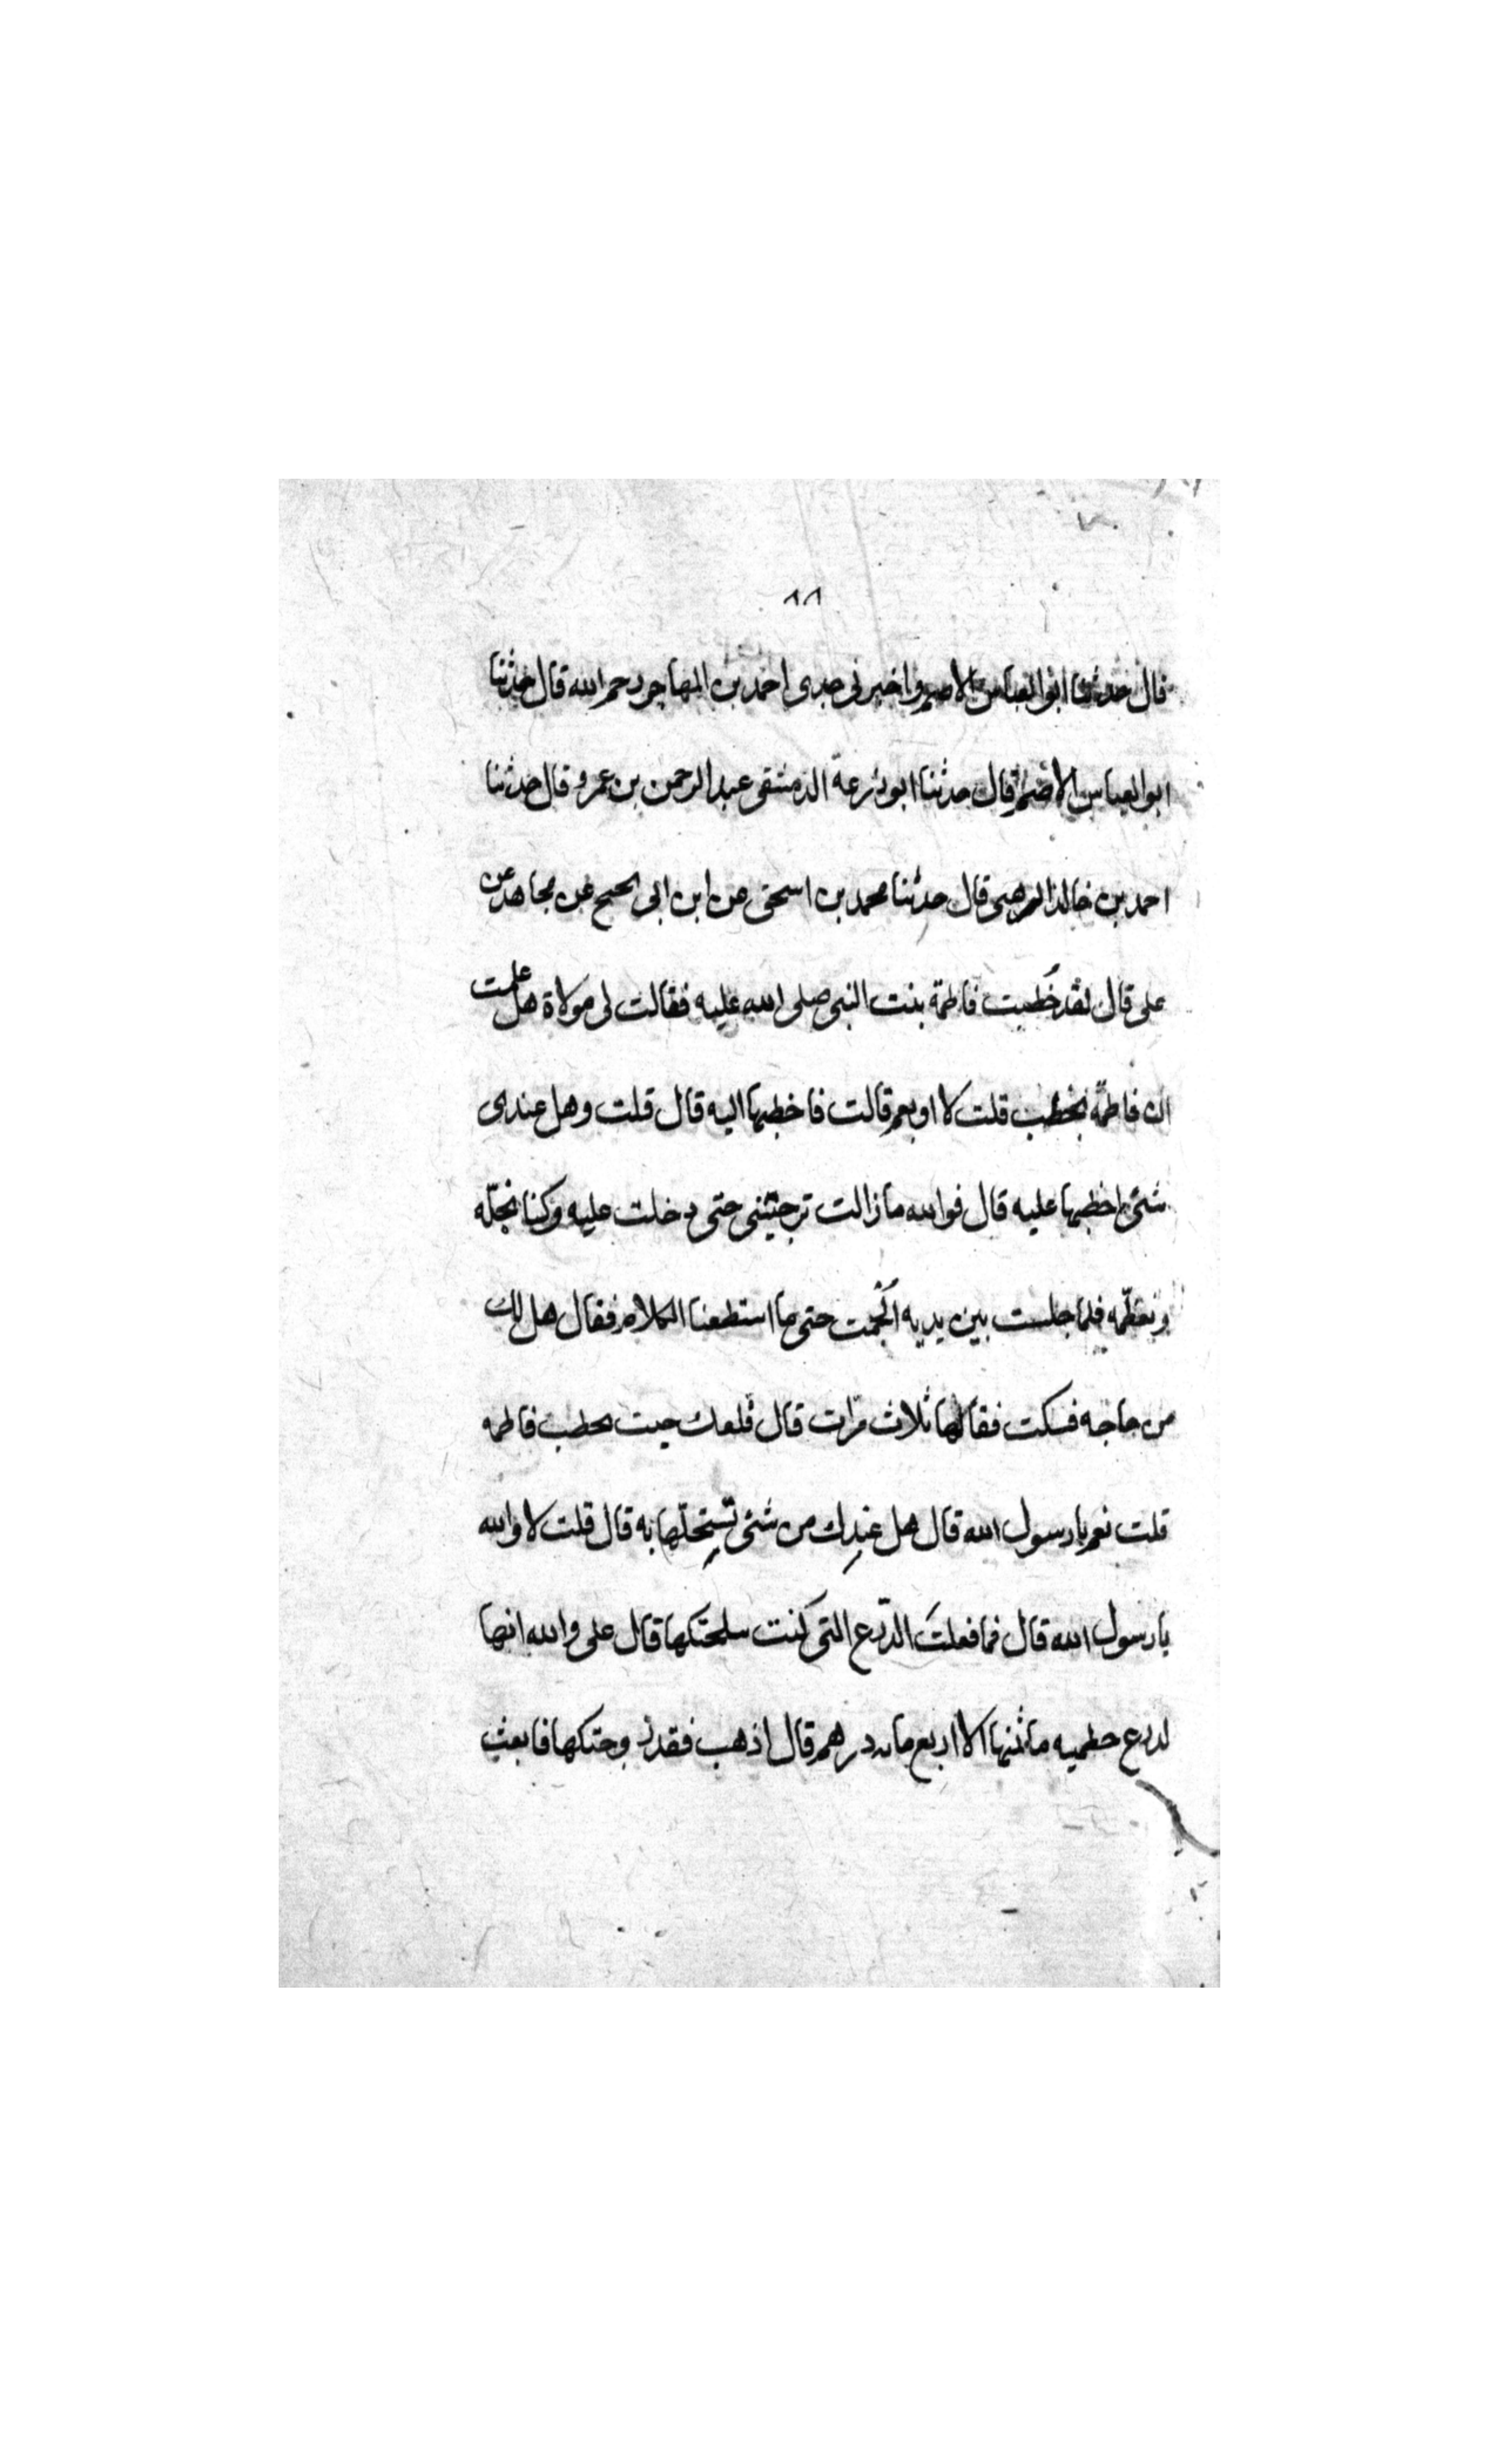 ٨٨
قال حدثنا ابو العباس الاصم واخبرنى جدى احمد بن المهاجر رحمه الله قال حدثنا
ابو العباس الاصم قال حدثنا ابو زرعة الدمشقى عبد الرحمن بن عمرو قال حدثنا
احمد بن خالد الوهبى قال حدثنا محمد بن اسحق عن ابن ابى نجيح عن مجاهد عن
على قال لقد خُطبت فاطمة بنت النبى صلى الله عليه فقالت لى مولاة هل علمت
ان فاطمة تخطب قلت لا او نعم قالت فاخطبها اليه قال قلت وهل عندى
شئ اخطبها عليه قال فوالله ما زالت ترجينى حتى دخلت عليه وكنا نجلّه
ونعظّمه فلما جلست بين يديه اُلجمت حتى ما استطعنا الكلام فقال هل لك
من حاجه فسكت فقالها ثلاث مرّات قال فلعلك جيت تخطب فاطمه
قلت نعم يا رسول الله قال هل عندك من شئ تستحلّها به قال قلت لا والله
يا رسول الله قال فما فعلتَ الدّرع التى كنت سلحتكها قال على والله انها
لدرع حطميه ما ثمنها الا اربع مايه درهم قال اذهب فقد زوجتكها فابعث